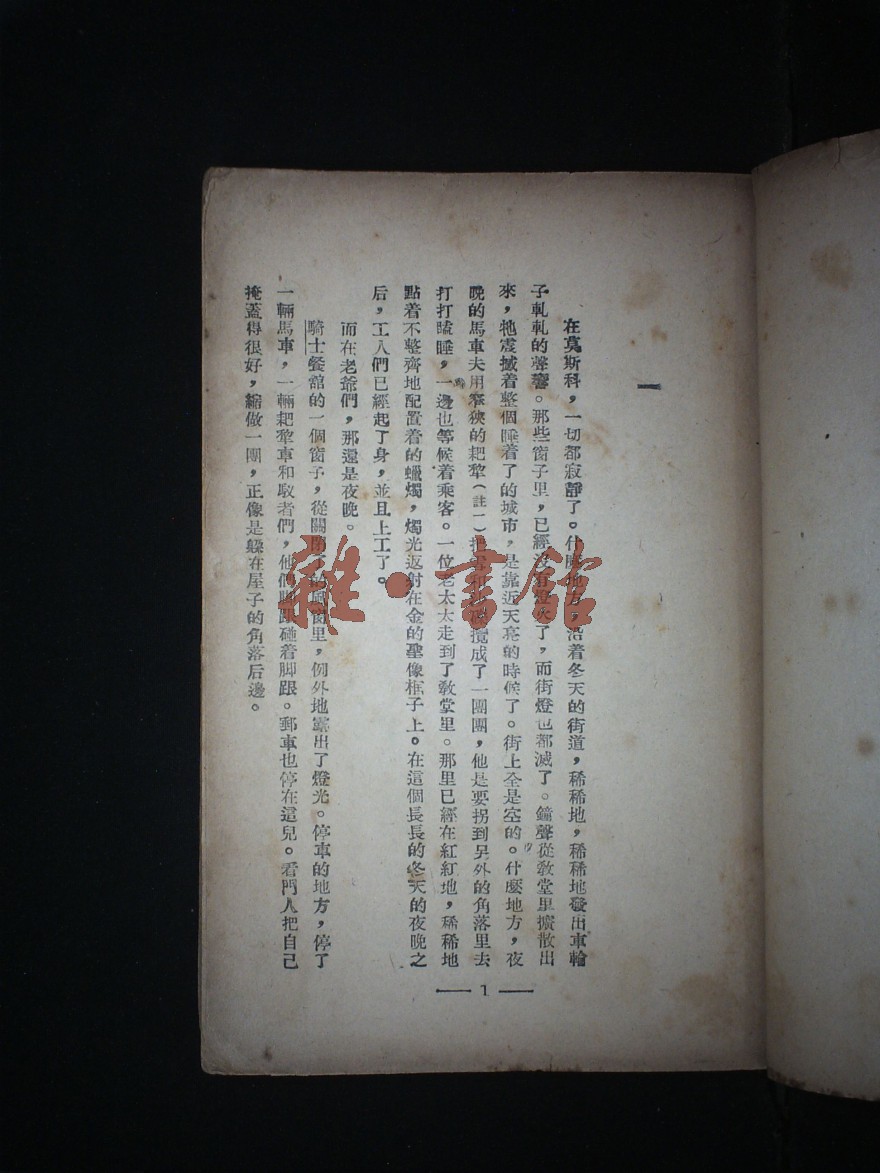 一
在莫斯科，一切都寂靜了。什麼地方，沿着冬天的街道，稀稀地，稀稀地發出車輪
子軋軋的聲響。那些窗子里，已經沒有燈火了，而街燈也都滅了。鐘聲從教堂里擴散出
來，牠震撼着整個睡着了的城市，是靠近天亮的時候了。街上全是空的。什麼地方，夜
晚的馬車夫用窄狹的耙犂（註一）把雪和攪成了一團團，他是要拐到另外的角落里去
打打瞌睡，一邊也等候着乘客。一位老太太走到了教堂里。那里已經在紅紅地，稀稀地
點着不整齊地配置着的蠟燭，燭光返射在金的聖像框子上。在這個長長的冬天的夜晚之
后，工人們已經起了身，並且上工了。
而在老爺們，那還是夜晚。
騎士餐舘的一個窗子，從關閉了的風窗里，例外地露出了燈光。停車的地方，停了
一輛馬車，一輛耙犂車和馭者們，他們脚跟碰着脚跟。郵車也停在這兒。看門人把自己
掩蓋得很好，縮做一團，正像是躱在屋子的角落后邊。
1
雜·書館